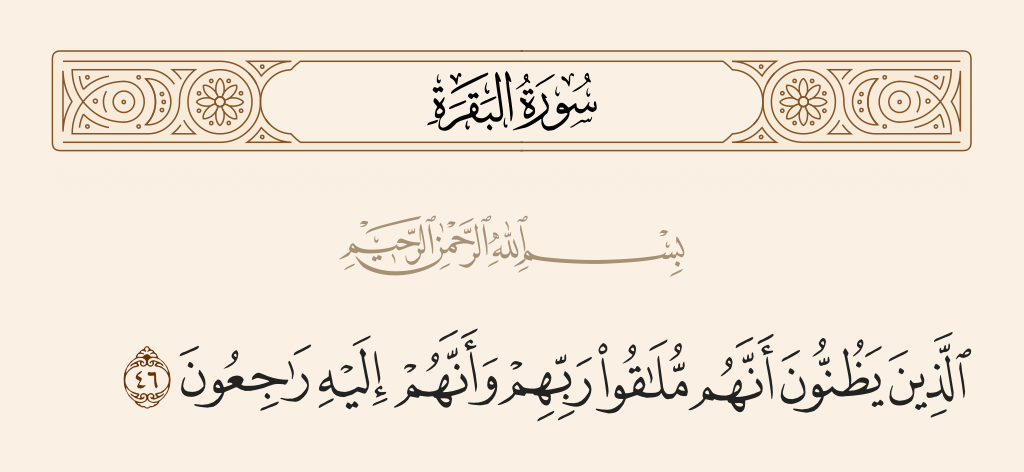 سُورَةُ البَقَرَةِ
بِسْمِ ٱللَّهِ ٱلرَّحْمَٰنِ ٱلرَّحِيمِ
ٱلَّذِينَ يَظُنُّونَ أَنَّهُم مُّلَٰقُوا۟ رَبِّهِمْ وَأَنَّهُمْ إِلَيْهِ رَٰجِعُونَ ٤٦